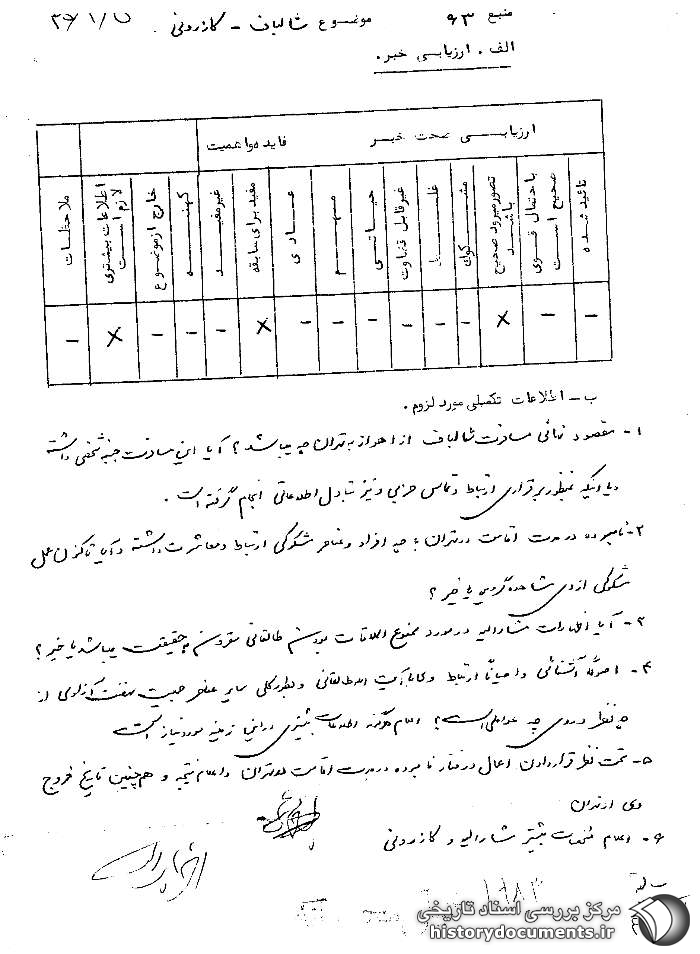 منبع ۶۳ موضوع شالباف - کازرونی
الف. ارزیابی خبر.
ارزیابی صحت خبر فایده و اهمیت
تائید شده
با احتمال قوی صحیح است
تصور میرود صحیح باشد
مشکوک
غلط
غیر قابل قضاوت
حیاتی
مهم
عادی
مفید برای سابقه
غیر مفید
کهنه
خارج از موضوع
اطلاعات بیشتری لازم است
ملاحظات
- - X - - - - - - X - - - X -
ب - اطلاعات تکمیلی مورد لزوم.
۱- مقصود نهائی مسافرت شالباف از اهواز به تهران چه میباشد؟ آیا این مسافرت جنبه شخصی داشته
و یا اینکه بمنظور برقراری ارتباط و تماس حزبی و نیز تبادل اطلاعاتی انجام گرفته است.
۲- نامبرده در مدت اقامت در تهران با چه افراد و عناصر مشکوکی ارتباط و معاشرت داشته و آیا تاکنون عمل
مشکوکی از وی مشاهده گردیده یا خیر؟
۳- آیا اظهارات مشارالیه در مورد ممنوع الملاقات بودن طالقانی مقرون به حقیقت میباشد یا خیر؟
۴- اصولاً آشنائی و احیاناً ارتباط وی با آیت اله طالقانی و بطور کلی سایر عناصر جمعیت نهضت آزادی از
چه نظر و روی چه عواملی است؟ اعلام هرگونه اطلاعات بیشتری در این زمینه مورد نیاز است
۵- تحت نظر قرار دادن اعمال و رفتار نامبرده در مدت اقامت در تهران و اعلام نتیجه و همچنین تاریخ خروج
وی از تهران
۶- اعلام مشخصات بیشتر مشارالیه و کازرونی
مرکز بررسی اسناد تاریخی
historydocuments.ir